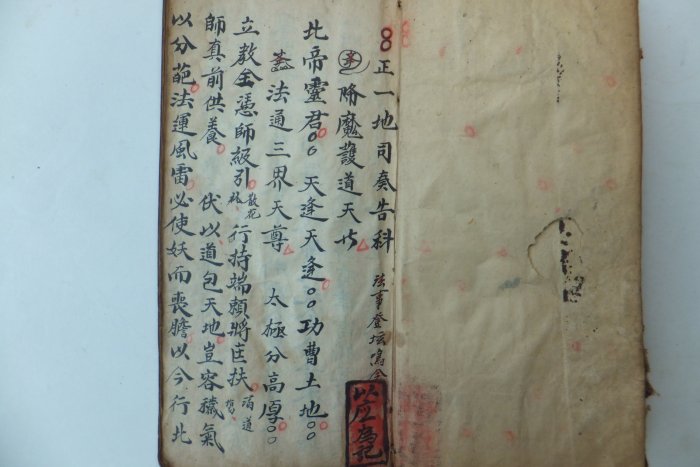 正一地司奏告科 法事登坛鳴
降魔護道天
北帝靈君 天逢天逢 功曹土地
法通三界天尊 太極分高厚
立教全憑師級引 散花 行持端頼將匡扶 道
師真前供養 伏以道包天地豈容穢氣
以分葩法運風雷必使妖而喪膽以今行北
以应為記